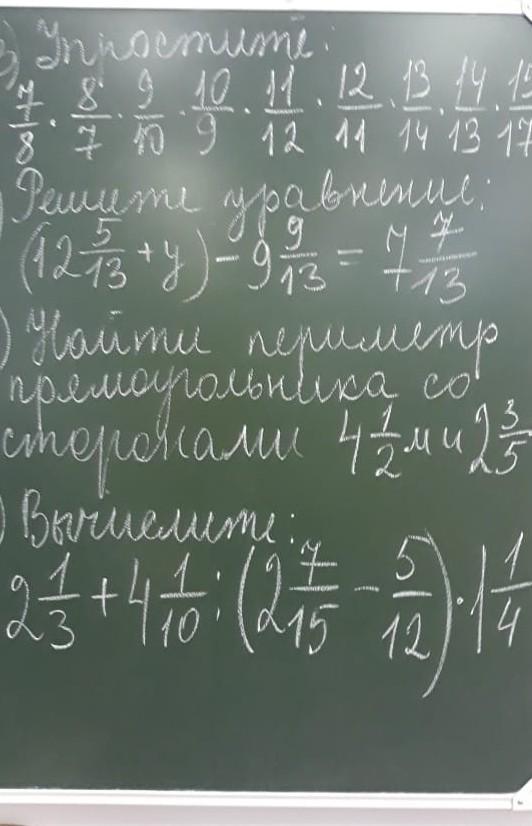 ) Упростите:
7/8 · 8/7 · 9/10 · 10/9 · 11/12 · 12/11 · 13/14 · 14/13 · 15/17
) Решите уравнение:
(12 5/13 + y) - 9 9/13 = 7 7/13
) Найти периметр
прямоугольника со
сторонами 4 1/2 м и 2 3/5
) Вычислите:
2 1/3 + 4 1/10 : (2 7/15 - 5/12) · 1 1/4